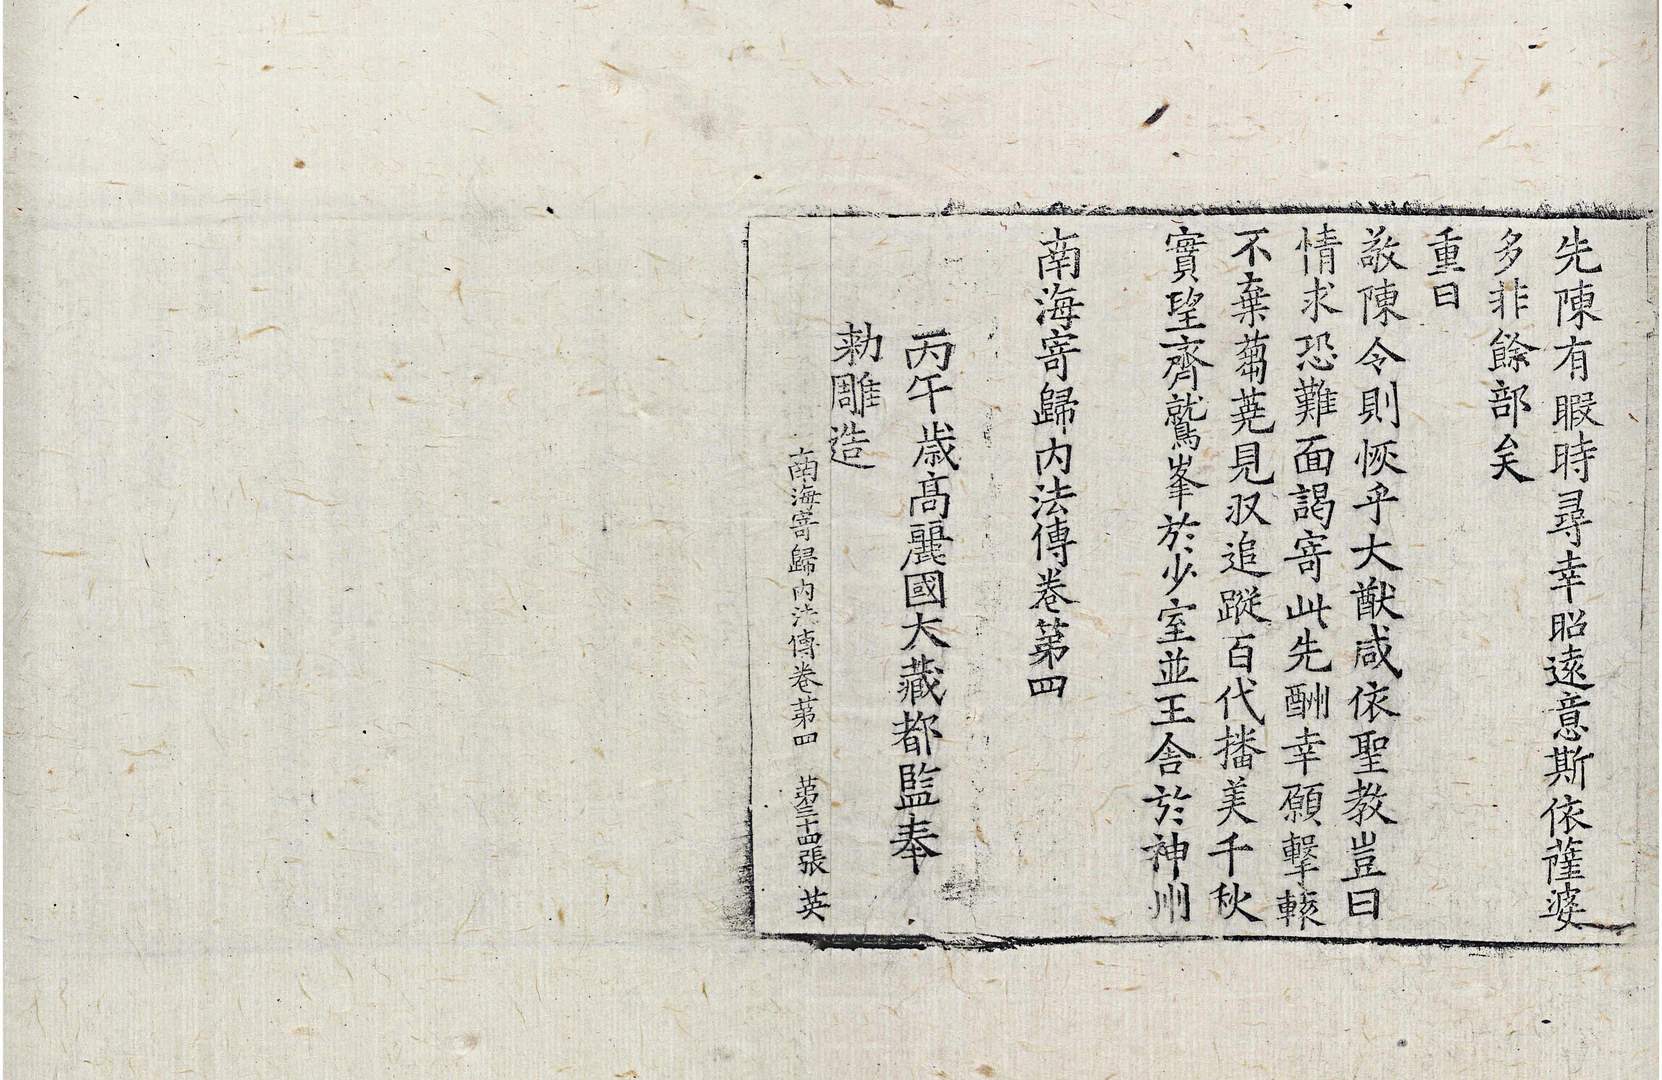 先陳有暇時尋幸昭遠意斯依薩婆
多非餘部矣
重曰
敬陳令則恢乎大猷咸依聖教豈曰
情求恐難面謁寄此先酬幸願擊轅
不棄蒭蕘見収追蹤百代播美千秋
實望齊鷲峯於少室並王舍於神州
南海寄歸内法傳卷第四
丙午歳髙麗國大藏都監奉
勑雕造
南海寄歸内法傳卷第四 第三十四張 英